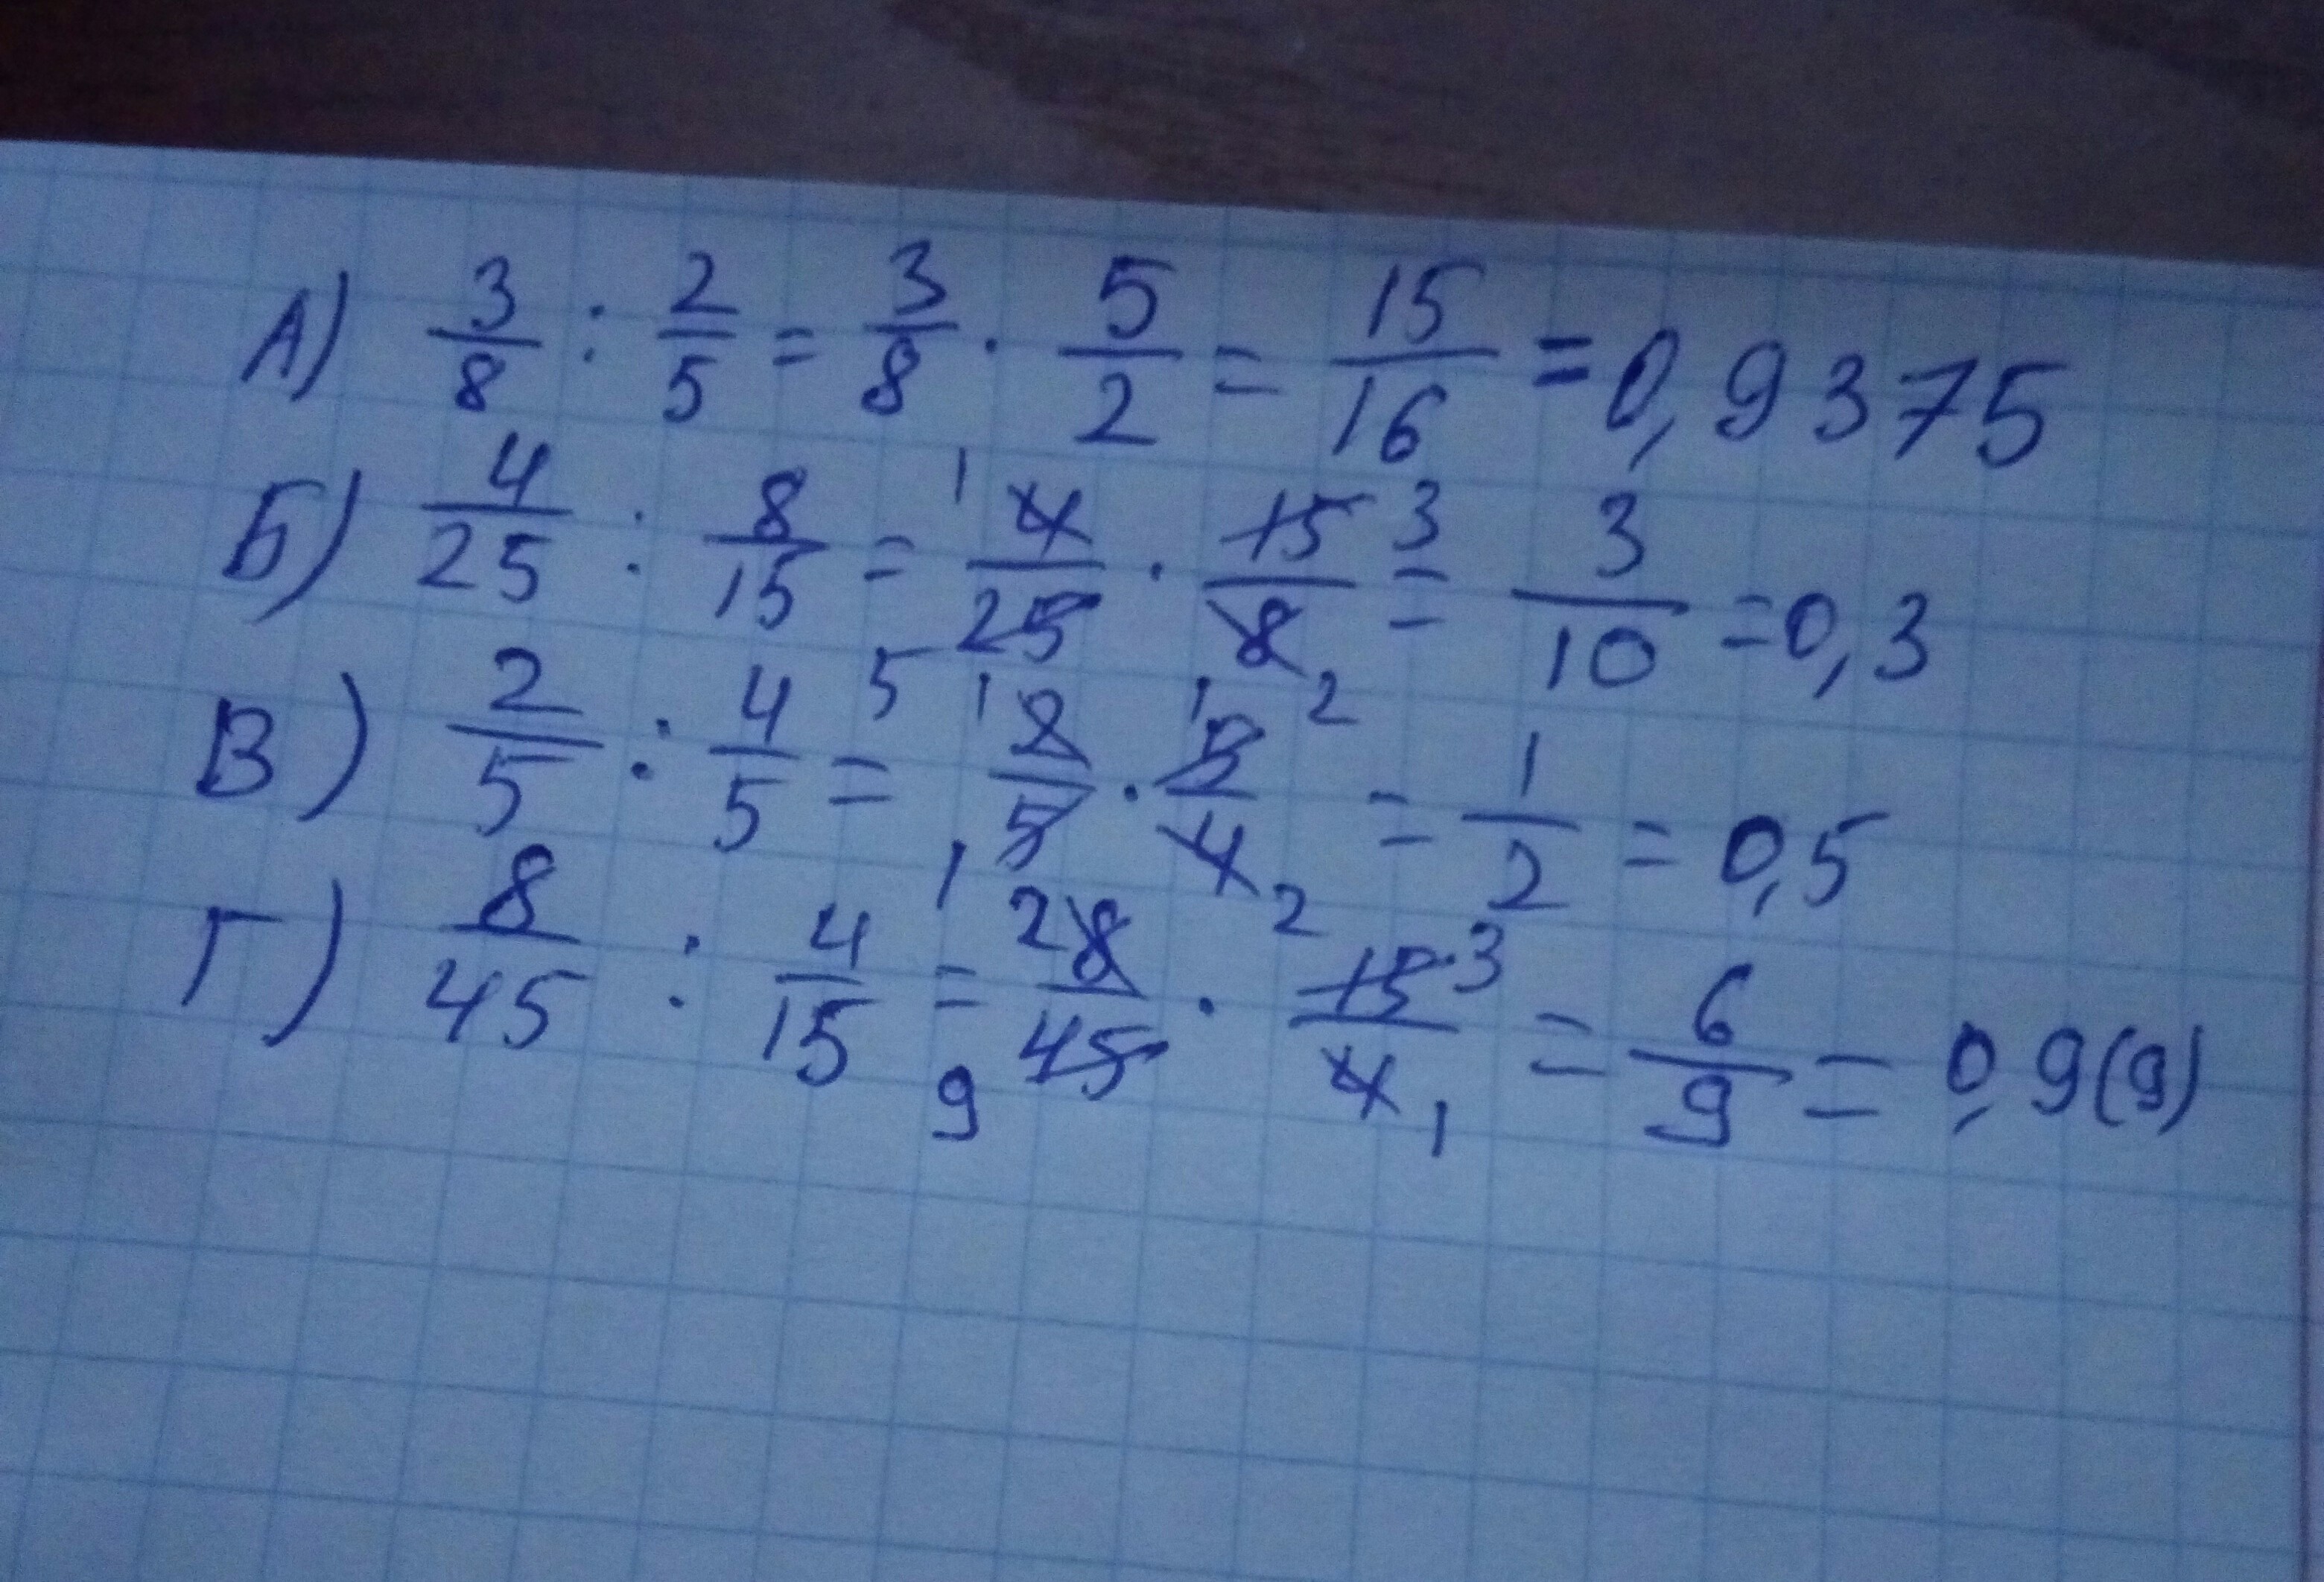 А) 3/8 : 2/5 = 3/8 · 5/2 = 15/16 = 0,9375
Б) 4/25 : 8/15 = 1 4/25 5 · 15/8 3 2 = 3/10 = 0,3
В) 2/5 : 4/5 = 1 2/5 1 · 1 5/4 2 = 1/2 = 0,5
Г) 8/45 : 4/15 = 2 8/45 9 · 15/4 3 1 = 6/9 = 0,9(9)